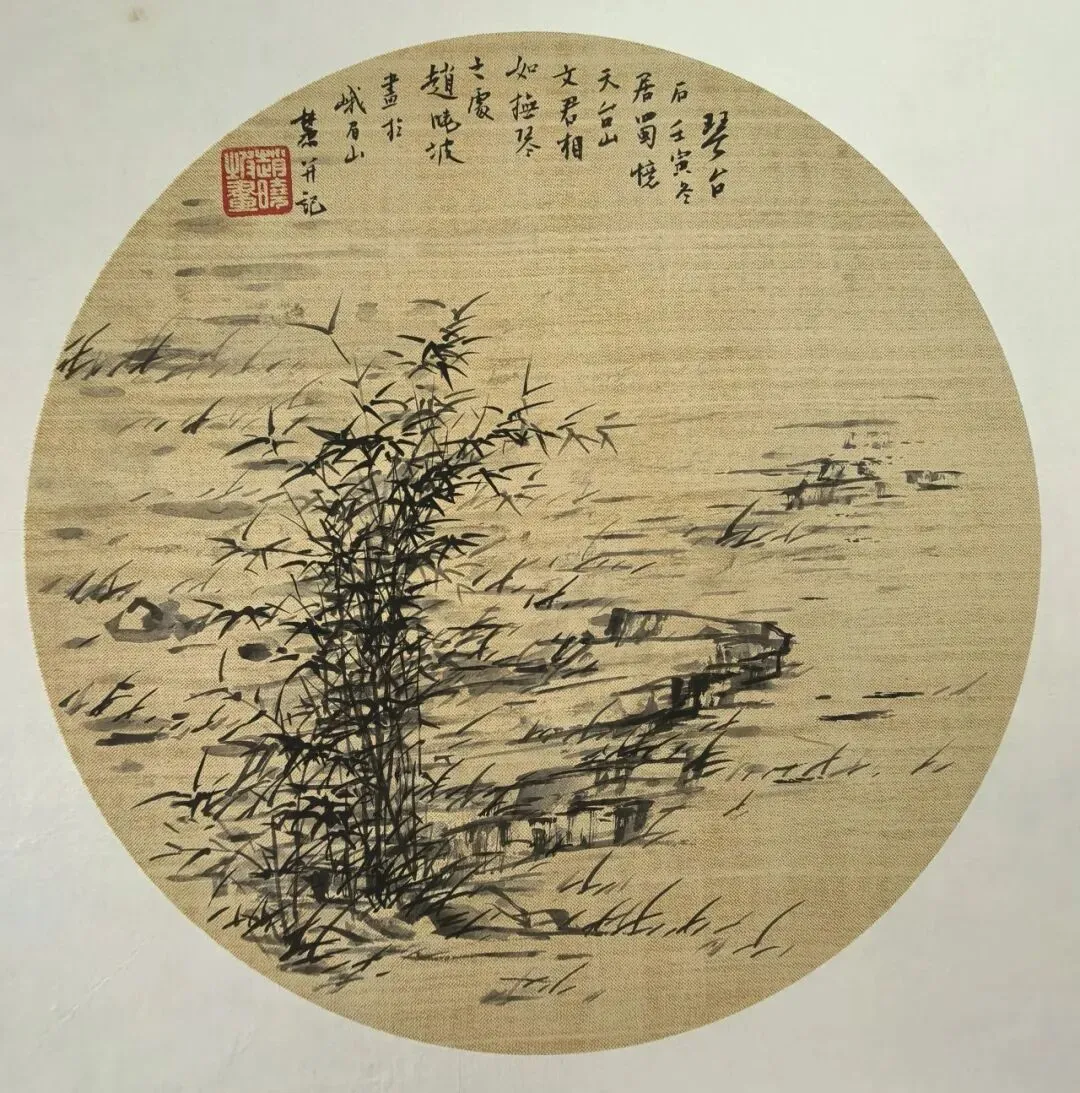 琴台
石壬寅冬
居蜀憶
天台山
文君相
如撫琴
之處
趙曉坡
畫於
峨眉山
麓并記
趙曉
坡畫